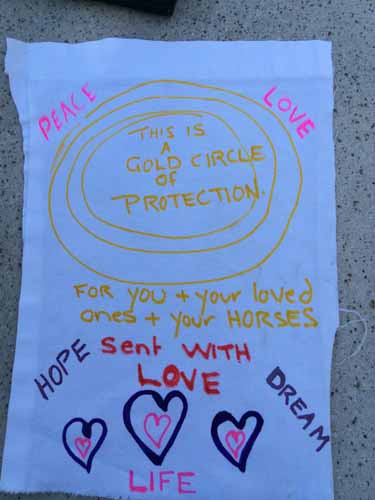 PEACE
LOVE
THIS IS
A
GOLD CIRCLE
OF
PROTECTION.
FOR YOU + your loved
ones + your HORSES
HOPE
Sent WITH
LOVE
DREAM
LIFE